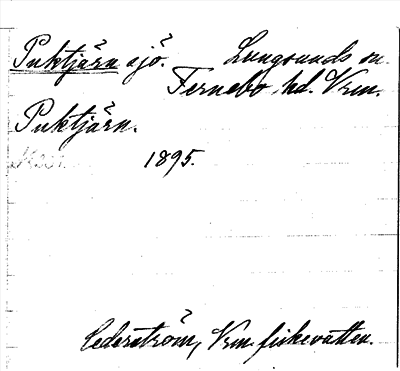 Puktjärn sjö. Lungsunds sn.
Fernebo hd. Vrm.
Puktjärn.
1895.
Cederström, Vrm. fiskevatten.